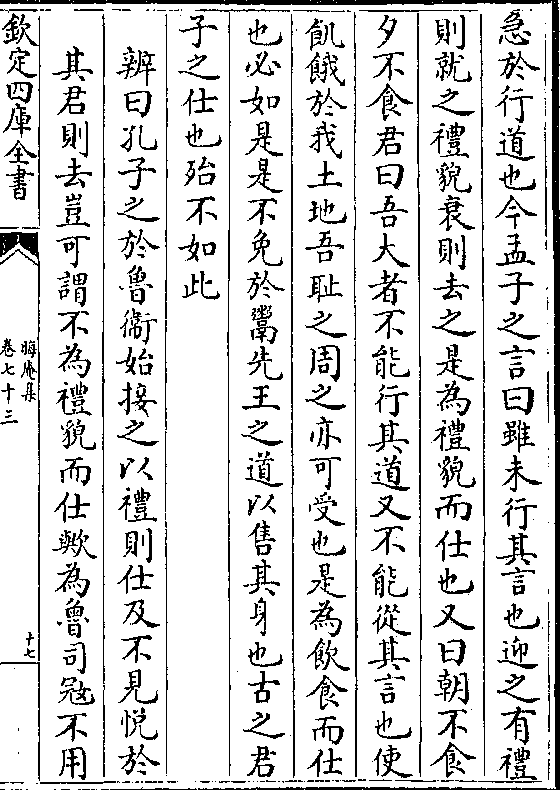 急於行道也今孟子之言曰雖未行其言也迎之有禮
則就之禮貌衰則去之是為禮貌而仕也又曰朝不食
夕不食君曰吾大者不能行其道又不能從其言也使
飢餓於我土地吾恥之周之亦可受也是為飲食而仕
也必如是是不免於鬻先王之道以售其身也古之君
子之仕也殆不如此
辨曰孔子之於魯衞始接之以禮則仕及不見悅於
其君則去豈可謂不為禮貌而仕歟為魯司冦不用
欽定四庫全書
晦庵集
卷七十三
十七